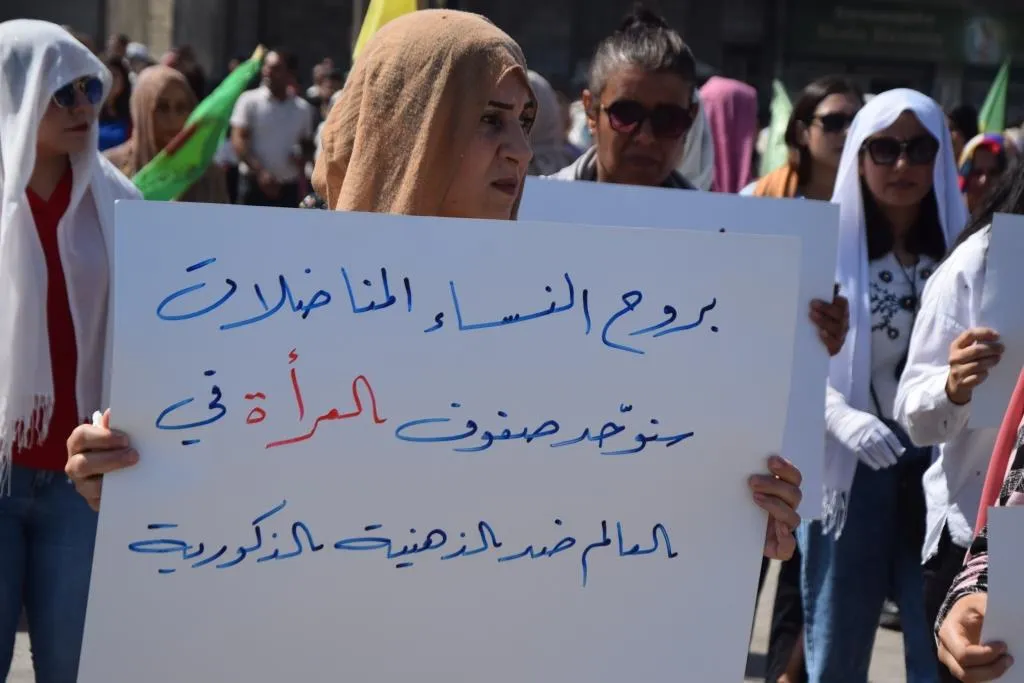 بروح النساء المناضلات
سنوحّد صفوف المرأة في
العالم ضد الذهنية الذكورية